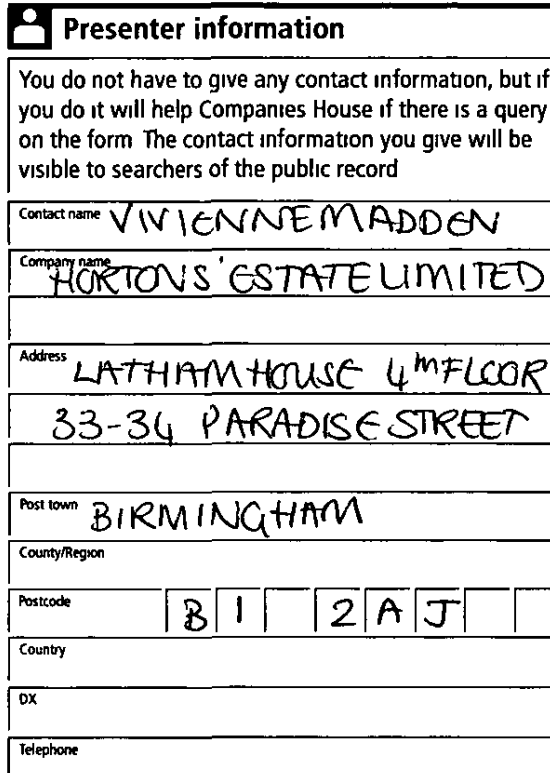 Presenter information
You do not have to give any contact information, but if
you do it will help Companies House if there is a query
on the form The contact information you give will be
visible to searchers of the public record
Contact name VIVIENNE MADDEN
Company name HORTONS' ESTATE LIMITED
Address LATHAM HOUSE 4TH FLOOR
33-34 PARADISE STREET
Post town BIRMINGHAM
County/Region
Postcode B1 2AJ
Country
DX
Telephone